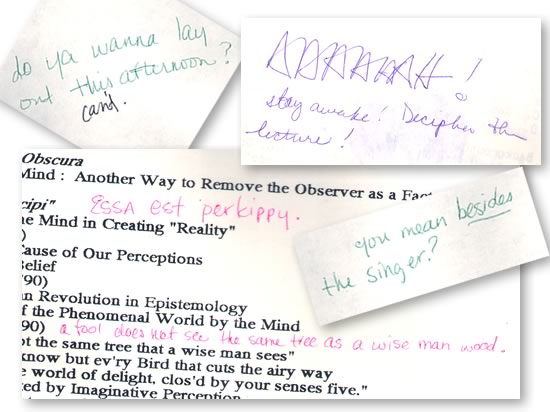 do ya wanna lay
out this afternoon?
can'd.
AAAAAAAH!
stay awake! Decipher the
lecture!
Obscura
Mind : Another Way to Remove the Observer as a Fac
cipi" Essa est perkippy.
ne Mind in Creating "Reality"
)
Cause of Our Perceptions
Belief
'90)
n Revolution in Epistemology
f the Phenomenal World by the Mind
90) a fool does not see the same tree as a wise man wood.
ot the same tree that a wise man sees"
know but ev'ry Bird that cuts the airy way
e world of delight, clos'd by your senses five."
ted by Imaginative Perception
you mean besides
the singer?